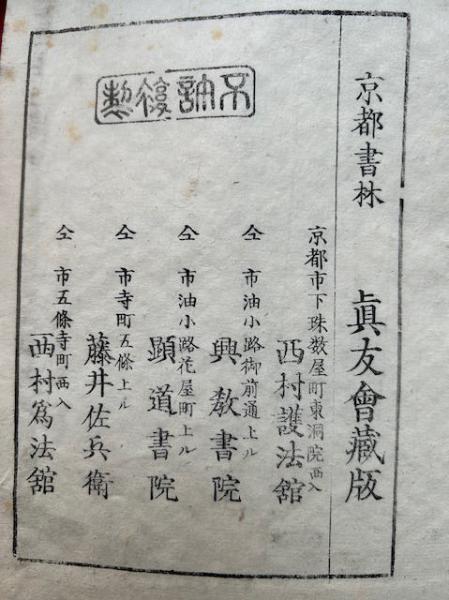 京都書林 眞友會藏版
京都市下珠数屋町東洞院西入
西村護法舘
仝 市油小路御前通上ル
興教書院
仝 市油小路花屋町上ル
顕道書院
仝 市寺町五條上ル
藤井佐兵衛
仝 市五條寺町西入
西村爲法舘
不許複製